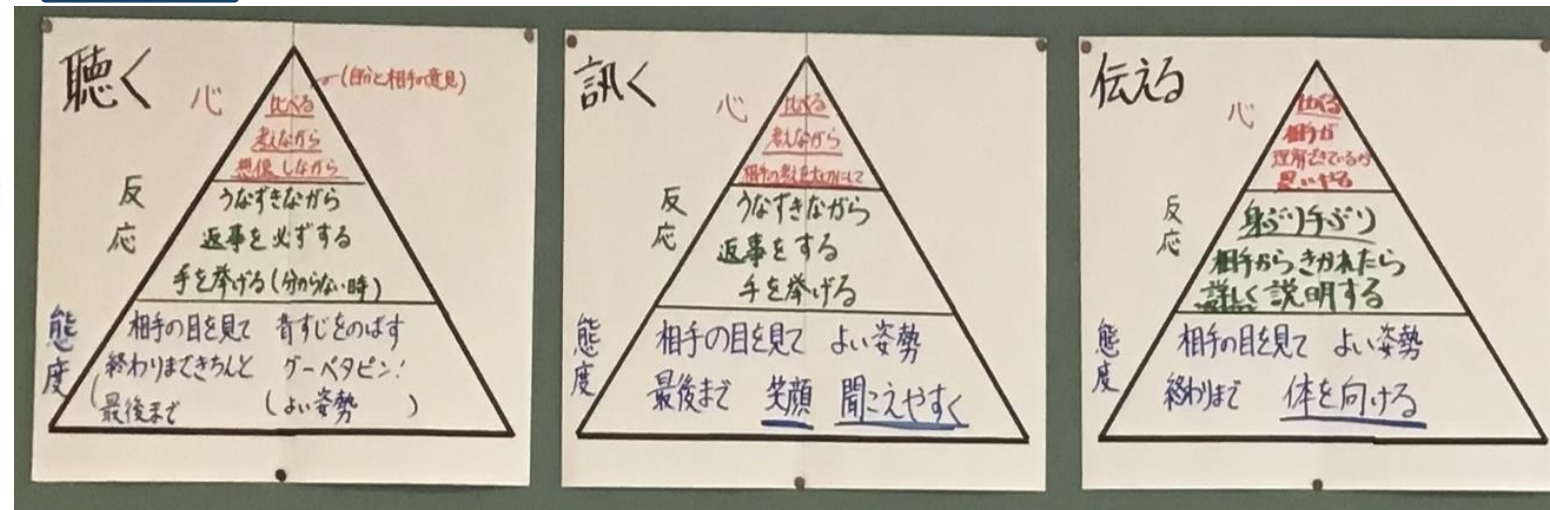 聴く
心
(自分と相手の意見)
比べる
考えながら
想像しながら
反応
うなずきながら
返事を必ずする
手を挙げる(分からない時)
態度
相手の目を見て 背すじをのばす
終わりまできちんと グーペタピン!
(最後まで (よい姿勢 )
訊く
心
比べる
考えながら
相手の考えを大切にして
反応
うなずきながら
返事をする
手を挙げる
態度
相手の目を見て よい姿勢
最後まで 笑顔 聞こえやすく
伝える
心
比べる
相手が
理解できているか
思いやる
反応
身ぶり手ぶり
相手からきかれたら
詳しく説明する
態度
相手の目を見て よい姿勢
終わりまで 体を向ける